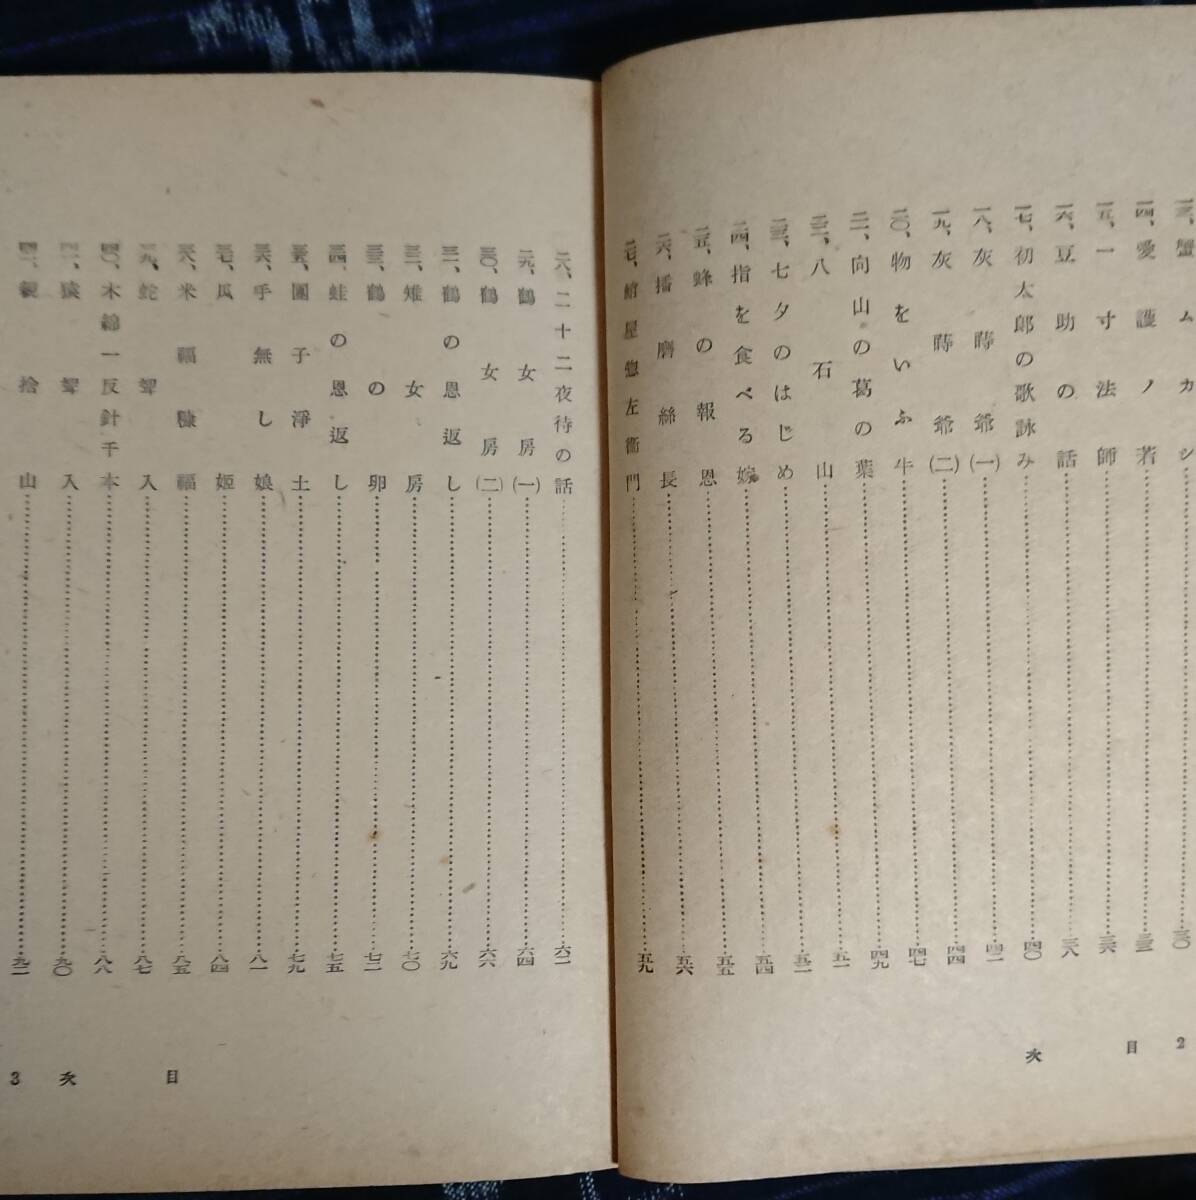 一三、蟹ムカシ……三〇
一四、愛護ノ若……三三
一五、一寸法師……三六
一六、豆助の話……三八
一七、初太郎の歌詠み……四〇
一八、灰蒔爺(一)……四二
一九、灰蒔爺(二)……四四
二〇、物をいふ牛……四七
二一、向山の葛の葉……四九
二二、八石山……五一
二三、七夕のはじめ……五二
二四、指を食べる嫁……五四
二五、蜂の報恩……五五
二六、播磨絲長……五六
二七、䌷屋惣左衞門……五九
目次 2
二八、二十二夜待の話……六二
二九、鶴女房(一)……六四
三〇、鶴女房(二)……六六
三一、鶴の恩返し……六九
三二、雉女房……七〇
三三、鶴の卵……七二
三四、蛙の恩返し……七五
三五、團子淨土……七九
三六、手無し娘……八一
三七、瓜姫……八四
三八、米福糠福……八五
三九、蛇聟入……八七
四〇、木綿一反針千本……八八
四一、猿聟入……九〇
四二、親捨山……九二
目次 3